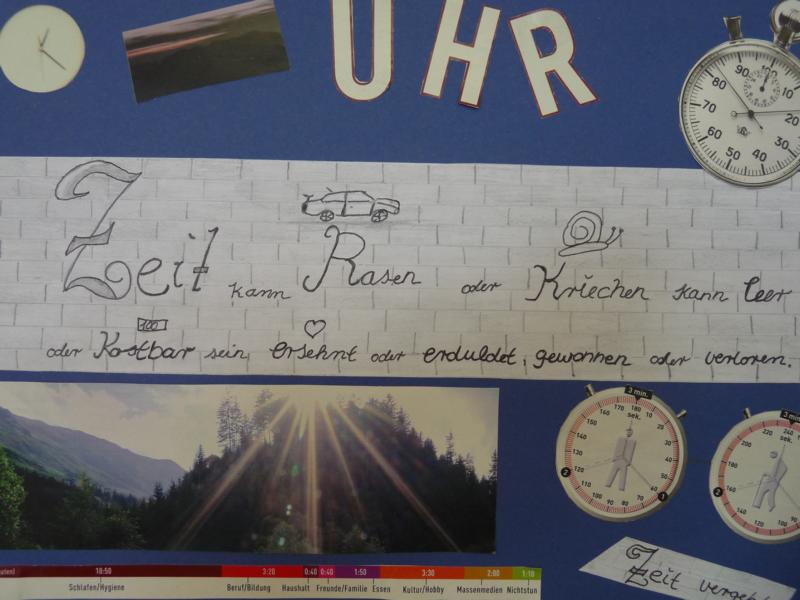 UHR
Zeit kann Rasen oder Kriechen kann leer
oder Kostbar sein, ersehnt oder erduldet, gewonnen oder verloren.
100
90 100 10
80 20
70
60 50 40
3 min.
170 180 10
sek.
160
150
140
130
120
110
100 90 80 70
60
50
2
1
3 min.
220 240
sek.
200
180
160
140
120
2
10:50 3:20 0:40 0:40 1:50 3:30 2:00 1:10
Schlafen/Hygiene Beruf/Bildung Haushalt Freunde/Familie Essen Kultur/Hobby Massenmedien Nichtstun
Zeit vergeht